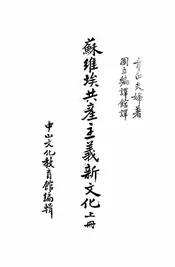 夫婦著
國立編譯館譯
蘇維埃共產主義新文化上冊
中山文化教育館編輯